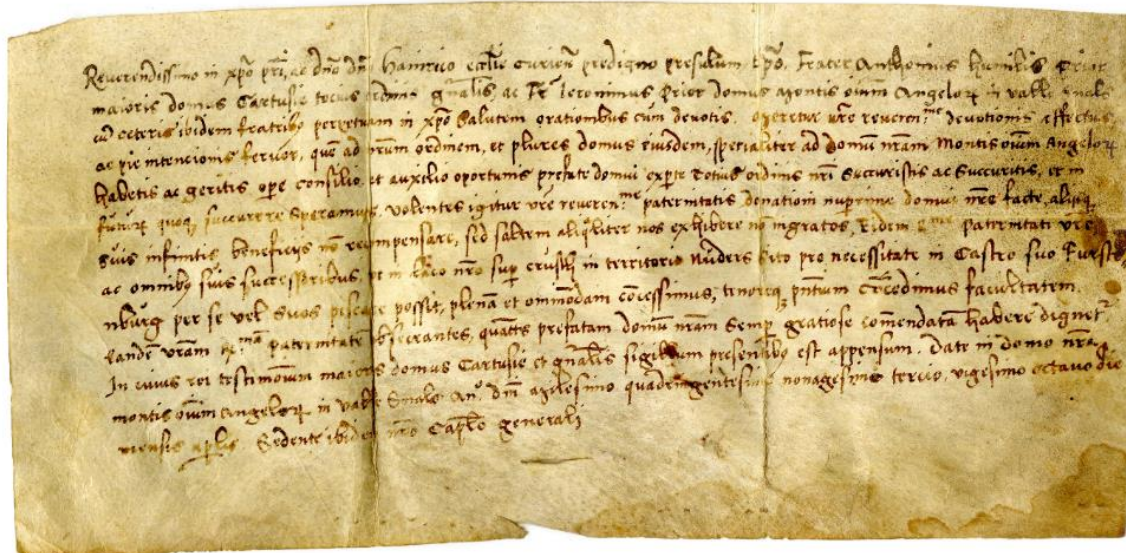 Reverendissimo in xpo pri, ac dno dno Hainrico ecclie Curien predigno presulum xpo. Frater Anthonius humilis Prior
maioris domus Cartusie tocius ordinis gnalis, ac Fr Ieronimus Prior domus Montis oium Angelor in valle Snals
cu ceteris ibidem fratribq perpetuam in xpo Salutem orationibus cum devotis. vre reveren.me devotionis effectus
ac pie intencionis fervor, que ad nrum ordinem, et plures domus eiusdem, specialiter ad domu nram Montis oium Angelor
habetis ac geritis ope consilio et auxilio oportunis prefate domui totius ordinis nri Succuristis ac Succuritis, et in
futur quoq succurrere Speramus, volentes igitur vre reveren.me paternitatis donationi nuperrime domui nre facte, aliisq
suis infinitis beneficijs no recompensare, sed saltem aliqliter nos exhibere no ingratos, Eidem R.me paternitati vre
ac omnibq suis successoribus, ut in laco nro sup in territorio Nuders sito pro necessitate in Castro suo Furste,
nburg per se vel Suos piscare possit, plena et omnimodam concessimus, tenoreq pntium concedimus facultatem.
Eande vram R.ma paternitate obsecrantes, quatts prefatam domu nram Semp gratiose comendata habere dignet.
In cuius rei testimonium maioris domus Cartusie et gnalis sigillum presentibq est appensum. Date in domo nra
montis oium Angelor in valle Snals An. dni Milesimo quadringentesimo nonagesimo tercio, vigesimo octavo die
mensis aplis Sedente ibidem nro Caplo generali